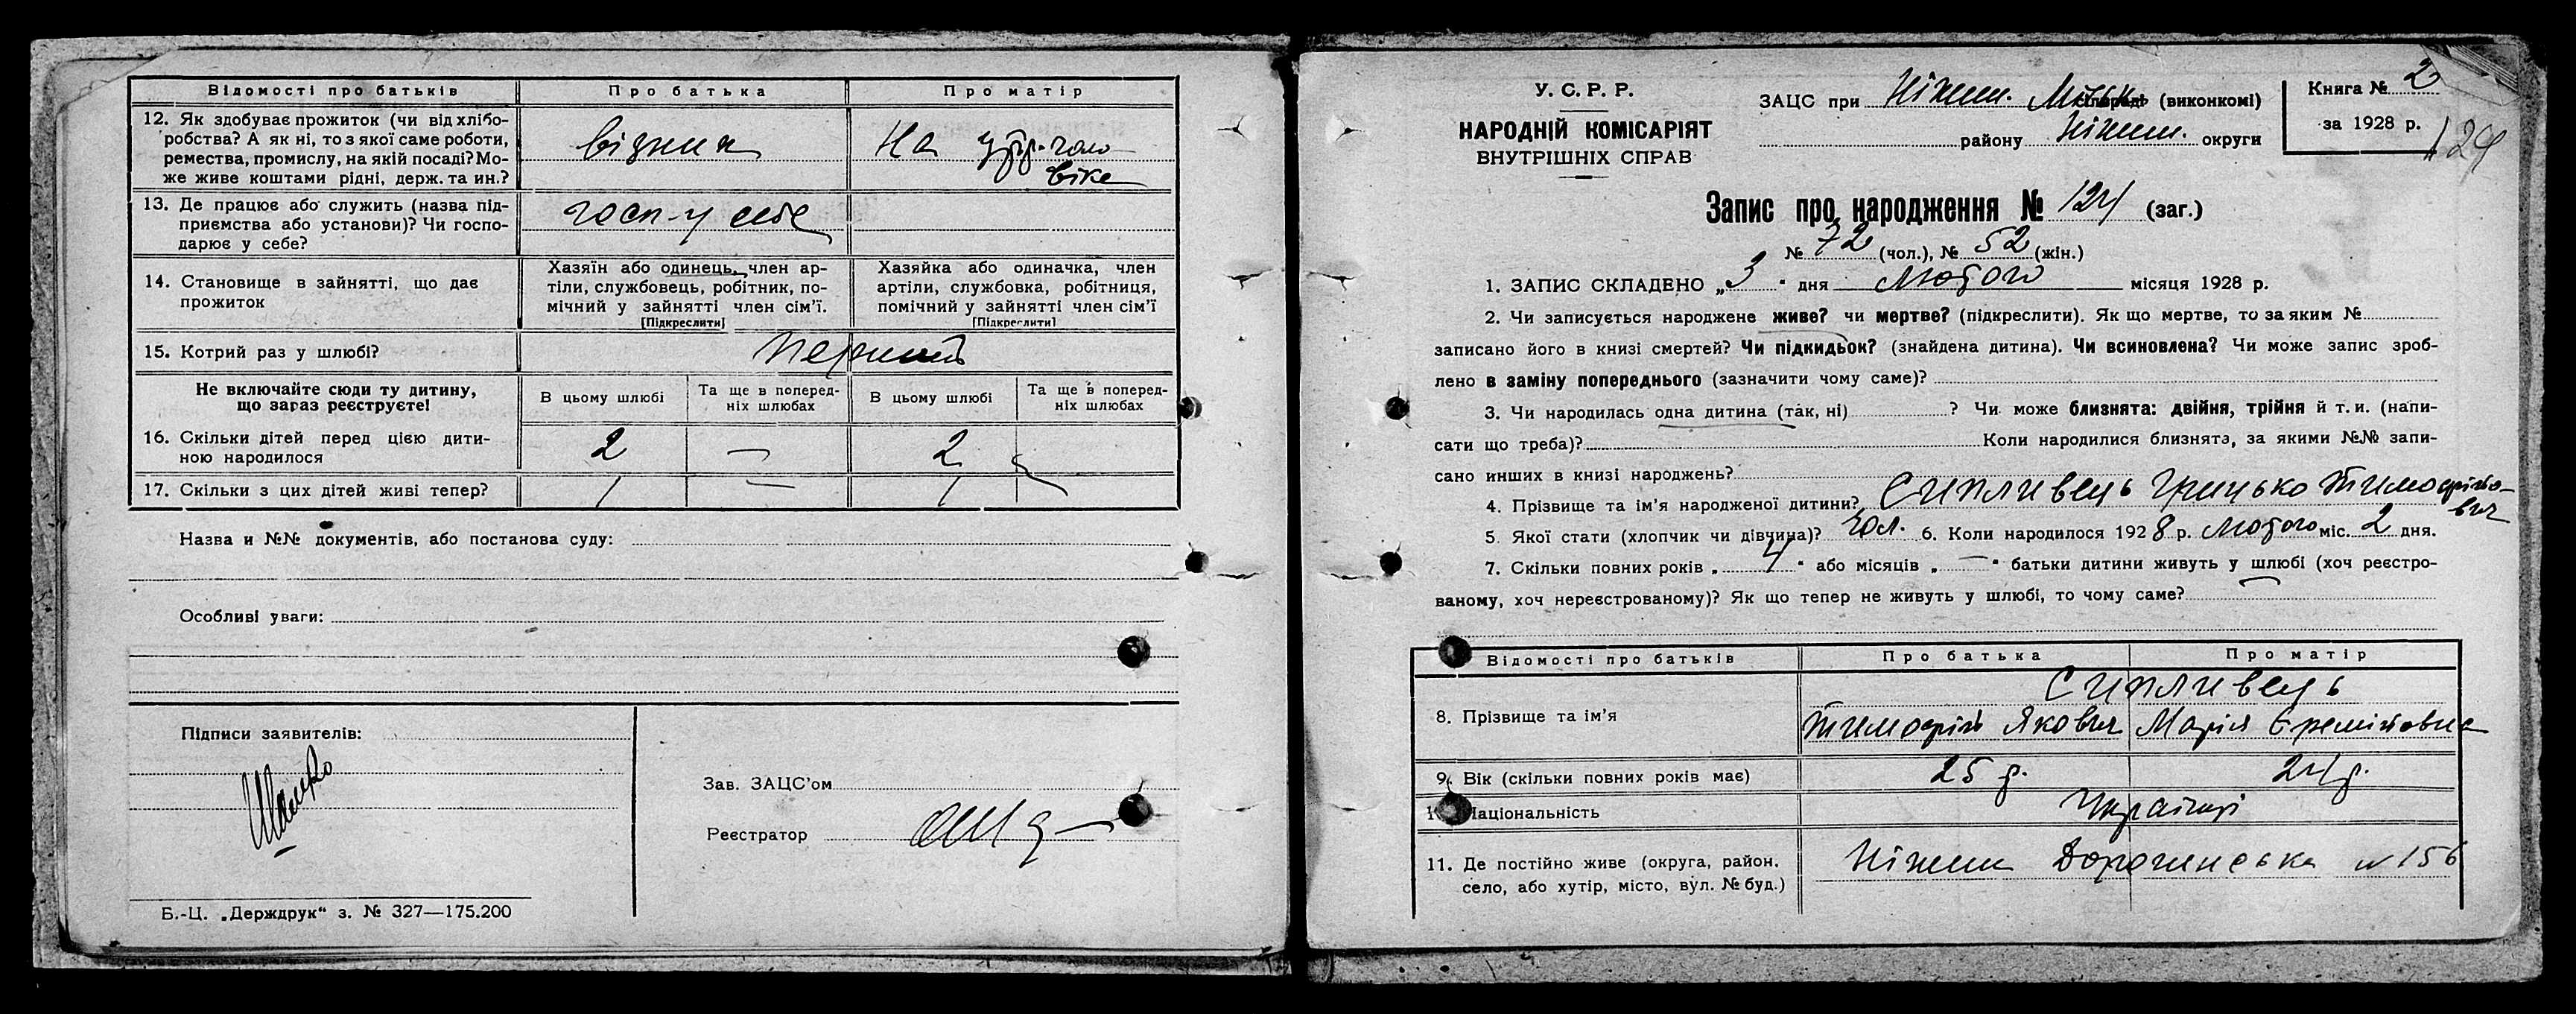 Відомості про батьків Про батька Про матір
12. Як здобуває прожиток (чи від хлібо-
робства? А як ні, то з якої саме роботи,
ремества, промислу, на якій посаді? Мо-
же живе коштами рідні, держ. та ин.?
візник
На утр. чоло-
віке
13. Де працює або служить (назва під-
приємства або установи)? Чи госпо-
дарює у себе?
госп-у себе
14. Становище в зайнятті, що дає
прожиток
Хазяїн або одинець, член ар-
тіли, службовець, робітник, по-
мічний у зайнятті член сім'ї.
[Підкреслити]
Хазяйка або одиначка, член
артіли, службовка, робітниця,
помічний у зайнятті член сім'ї
[Підкреслити]
15. Котрий раз у шлюбі? Перший
Не включайте сюди ту дитину,
що зараз реєструєте!
В цьому шлюбі
Та ще в поперед-
ніх шлюбах
В цьому шлюбі
Та ще в поперед-
ніх шлюбах
16. Скільки дітей перед цією дити-
ною народилося
2 — 2
17. Скільки з цих дітей живі тепер? 1 — 1
Назва и №№ документів, або постанова суду:
Особливі уваги:
Підписи заявителів:
Зав. ЗАЦС'ом
Реєстратор
Б.-Ц. „Держдрук“ з. № 327—175.200
У. С. Р. Р.
НАРОДНІЙ КОМІСАРІЯТ
ВНУТРІШНІХ СПРАВ
ЗАЦС при Ніжин. (виконкомі)
району Ніжин. округи
Книга № 2
за 1928 р.
124
Запис про народження № 124 (заг.)
№ 72 (чол.), № 52 (жін.)
1. ЗАПИС СКЛАДЕНО „3“ дня Лютого місяця 1928 р.
2. Чи записується народжене живе? чи мертве? (підкреслити). Як що мертве, то за яким №
записано його в книзі смертей? Чи підкидьок? (знайдена дитина). Чи всиновлена? Чи може запис зроб-
лено в заміну попереднього (зазначити чому саме)?
3. Чи народилась одна дитина (так, ні) ? Чи може близнята: двійня, трійня й т. и. (напи-
сати що треба)? Коли народилися близнята, за якими №№ запи-
сано инших в книзі народжень?
4. Прізвище та ім'я народженої дитини? Сипливець Грицько Тимофійо-
вич
5. Якої стати (хлопчик чи дівчина)? Чол. 6. Коли народилося 1928 р. Лютого міс. 2 дня.
7. Скільки повних років „4“ або місяців „—“ батьки дитини живуть у шлюбі (хоч реєстро-
ваному, хоч нереєстрованому)? Як що тепер не живуть у шлюбі, то чому саме? —
Відомості про батьків Про батька Про матір
Сипливець
8. Прізвище та ім'я Тимофій Якович Марія Єремійовна
9. Вік (скільки повних років має) 25 р. 24 р.
Національність Українці
11. Де постійно живе (округа, район,
село, або хутір, місто, вул. № буд.)
Ніжин Дорогинська №156